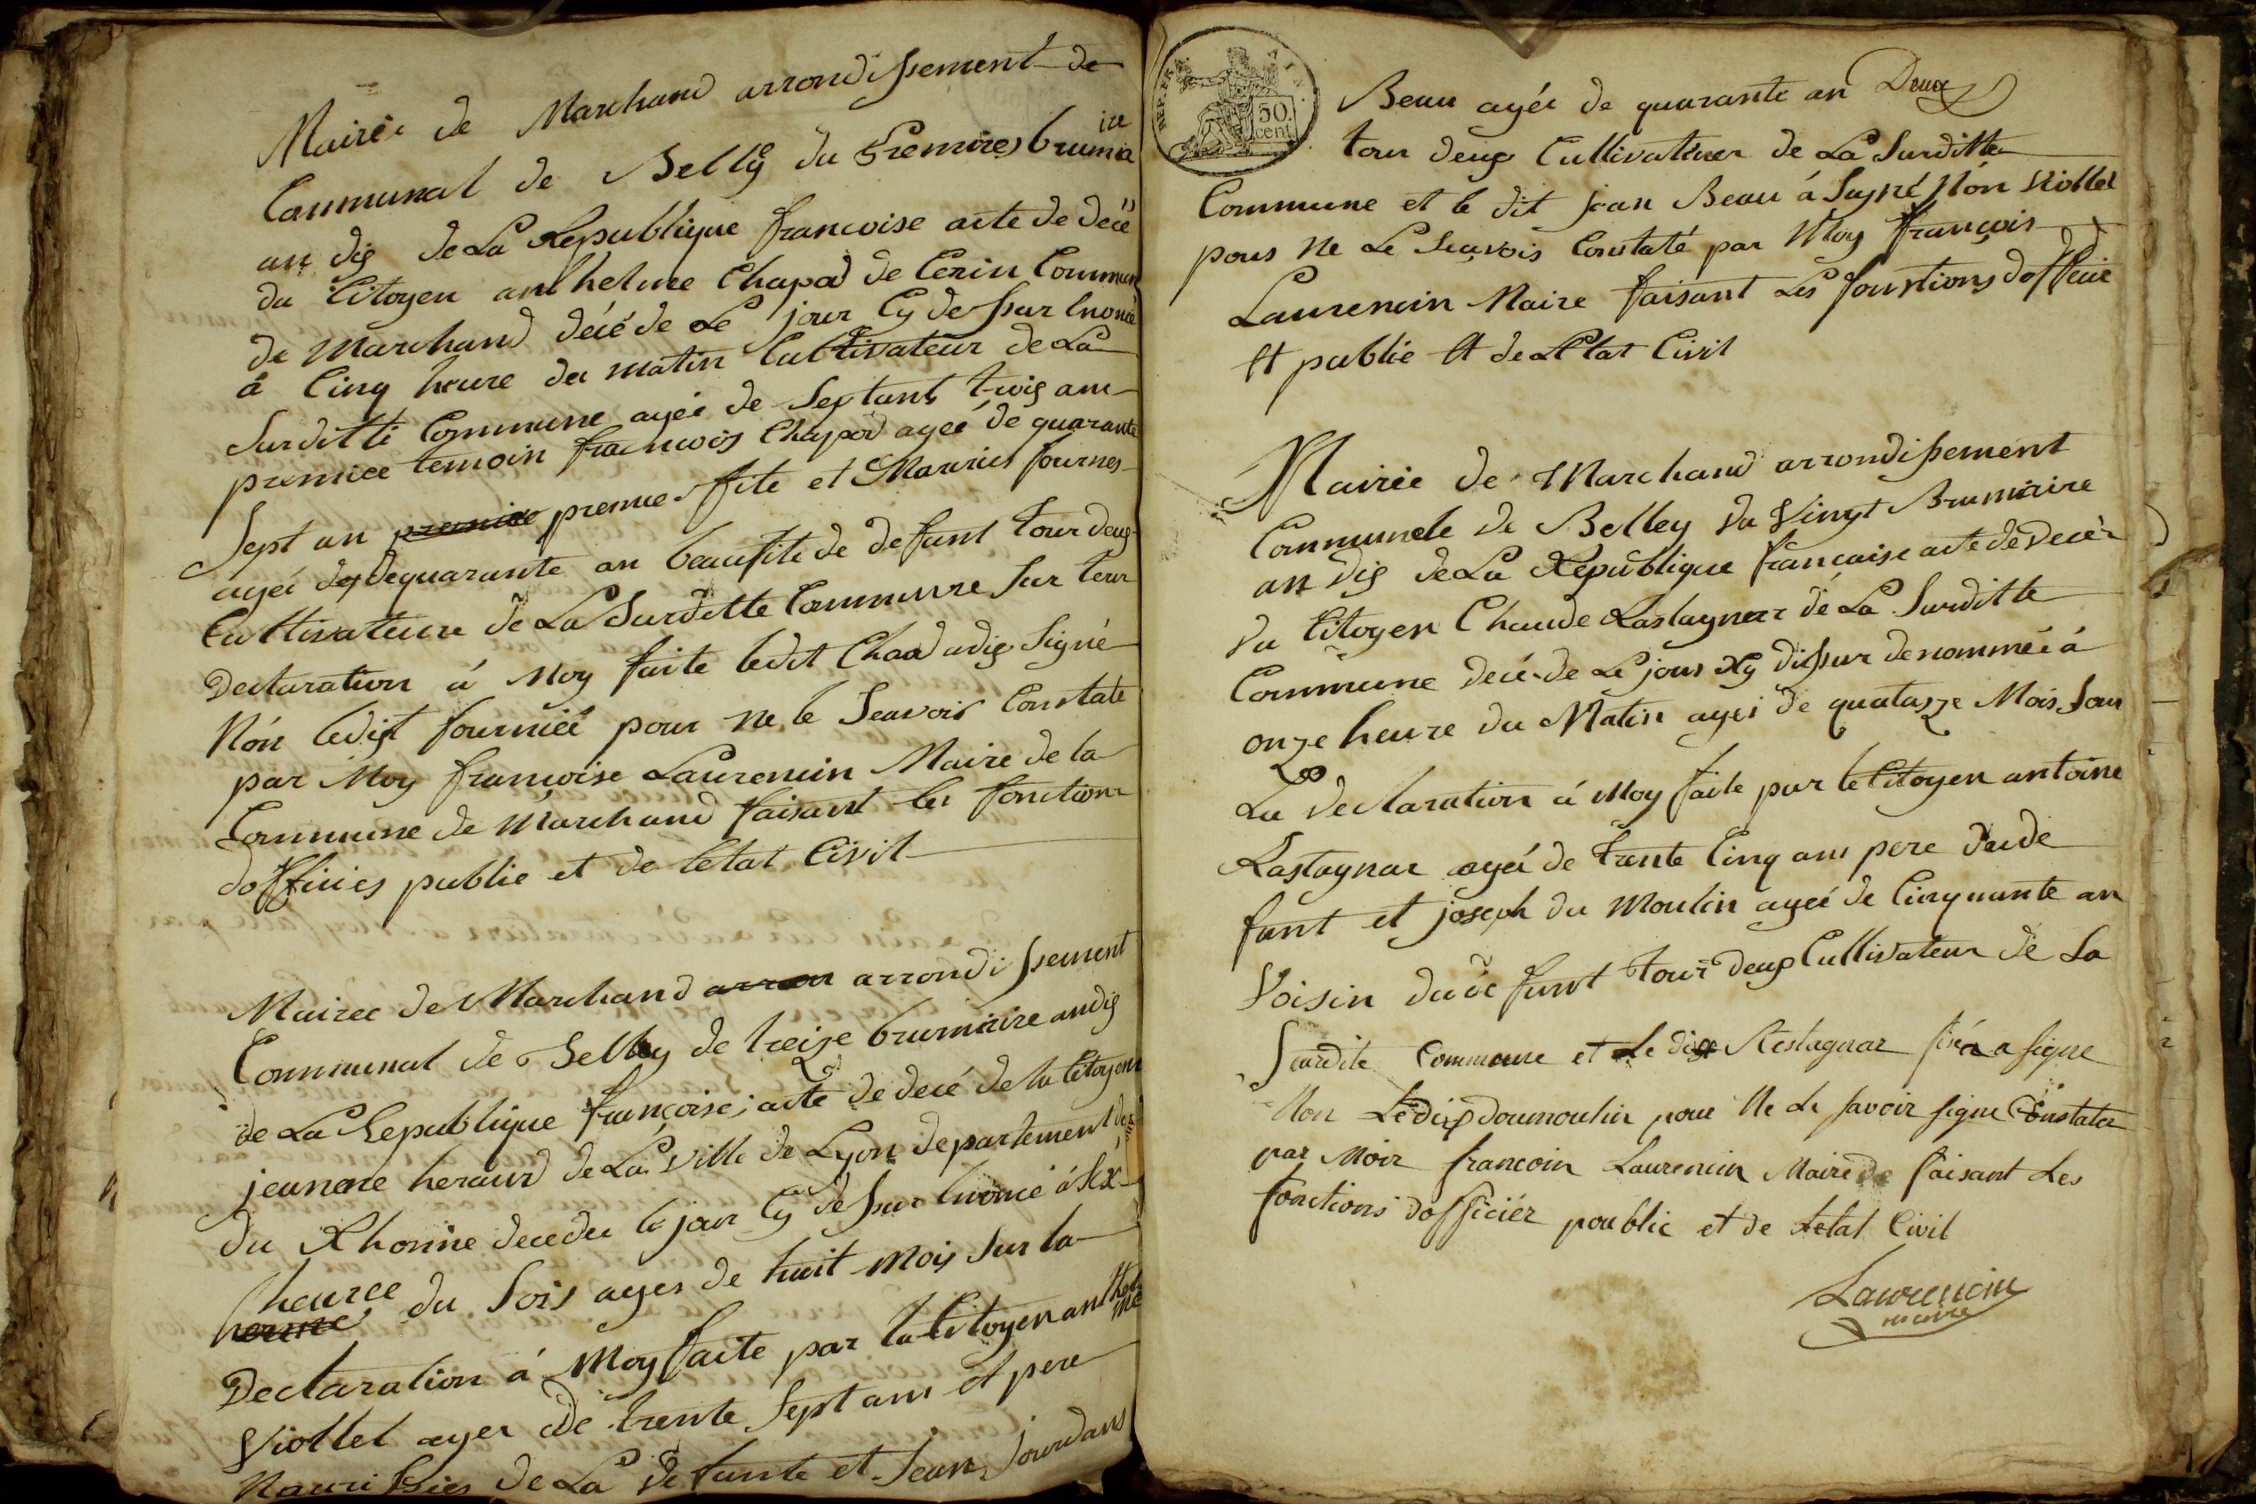 Mairie de Marchand arrondissement de
Communal de Belley du premiers brumaire
an dis de La Republique francoise acte de décé
du Citoyen anthelme Chapod de Cerin Commun
de Marchand décéde Le jour Cy dessur énoncé
à Cinq heure du matin Cultivateur de La
Surditte Commune agée de Septante trois ans
premiee temoin francois Chapod ageé de quarante
Sept an premier fils et Maurice fournes
agée de quarante an beaufils de defunt tour deux
Cultivateure de La Surditte Commune Sur leur
Declaration á Moy faite ledit Chapod Signé
Nón ledist fournieé pour ne le Scavoir Constate
par Moy francoise Laurencin Maire de la
Commune de Marchand faisant les fonction
dofficies public et de letat Civil
Mairee de Marchand arrondissement
Communal de Belley de treize brumaire an dis
de La Republique françoise acte de decé de la Citoyene
jeunene heraud de La Ville de Lyon departement
du Rhonne decedee le jour Cy dessur énoncé à six
heuree du Soir agee de huit Mois Sur la
Declaration á Moy faite par la Citoyen anthelme
Viollet agee de trente Sept ans et pere
Nourissier de La defunte et Jean Jourdans
REP. FRA.
50. cent
Beau agée de quarante an Deux
tour deux Cultivateur de La Surditte
Commune et le dit jean Beau á Signé Nón Viollet
pous ne Le Scavois Constaté par Moy françois
Laurencin Maire faisant Les fonctions dofficie
et public et de LEtat Civil
Mairie de Marchand arrondissement
Communele de Belley du Vingt Brumaire
an dis de La Republique francaise acte de decé
du Citoyen Chaude Rastagnar dé La Surditte
Commune decéde Le jour Cy dissur denommée á
onze heure du Matin agée de quatorze Mois Sour
La declaration á Moy faite par le Citoyen antoine
Rastagnar agée de trente Cinq ans pere dude
funt et joseph du Moulin ageé de Cinquante an
Voisin dudé funt tour deux Cultivateur de La
Surdite Commune et Le dit Restagnar a signe
Non Ledix doumoulin pour Ne Le savoir signe Constater
par Moir francoin Laurencin Maire faisant Les
fonctions dofficiér poublic et de Letat Civil
Laurencin
maire